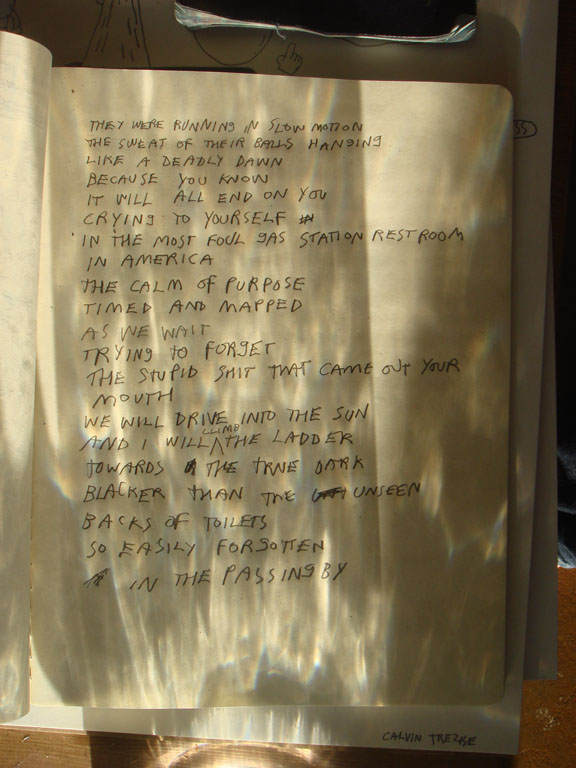 THEY WERE RUNNING IN SLOW MOTION
THE SWEAT OF THEIR BALLS HANGING
LIKE A DEADLY DAWN
BECAUSE YOU KNOW
IT WILL ALL END ON YOU
CRYING TO YOURSELF
IN THE MOST FOUL GAS STATION RESTROOM
IN AMERICA
THE CALM OF PURPOSE
TIMED AND MAPPED
AS WE WAIT
TRYING TO FORGET
THE STUPID SHIT THAT CAME OUT YOUR
MOUTH
WE WILL DRIVE INTO THE SUN
AND I WILL CLIMB THE LADDER
TOWARDS THE TRUE DARK
BLACKER THAN THE UNSEEN
BACKS OF TOILETS
SO EASILY FORGOTTEN
IN THE PASSING BY
CALVIN